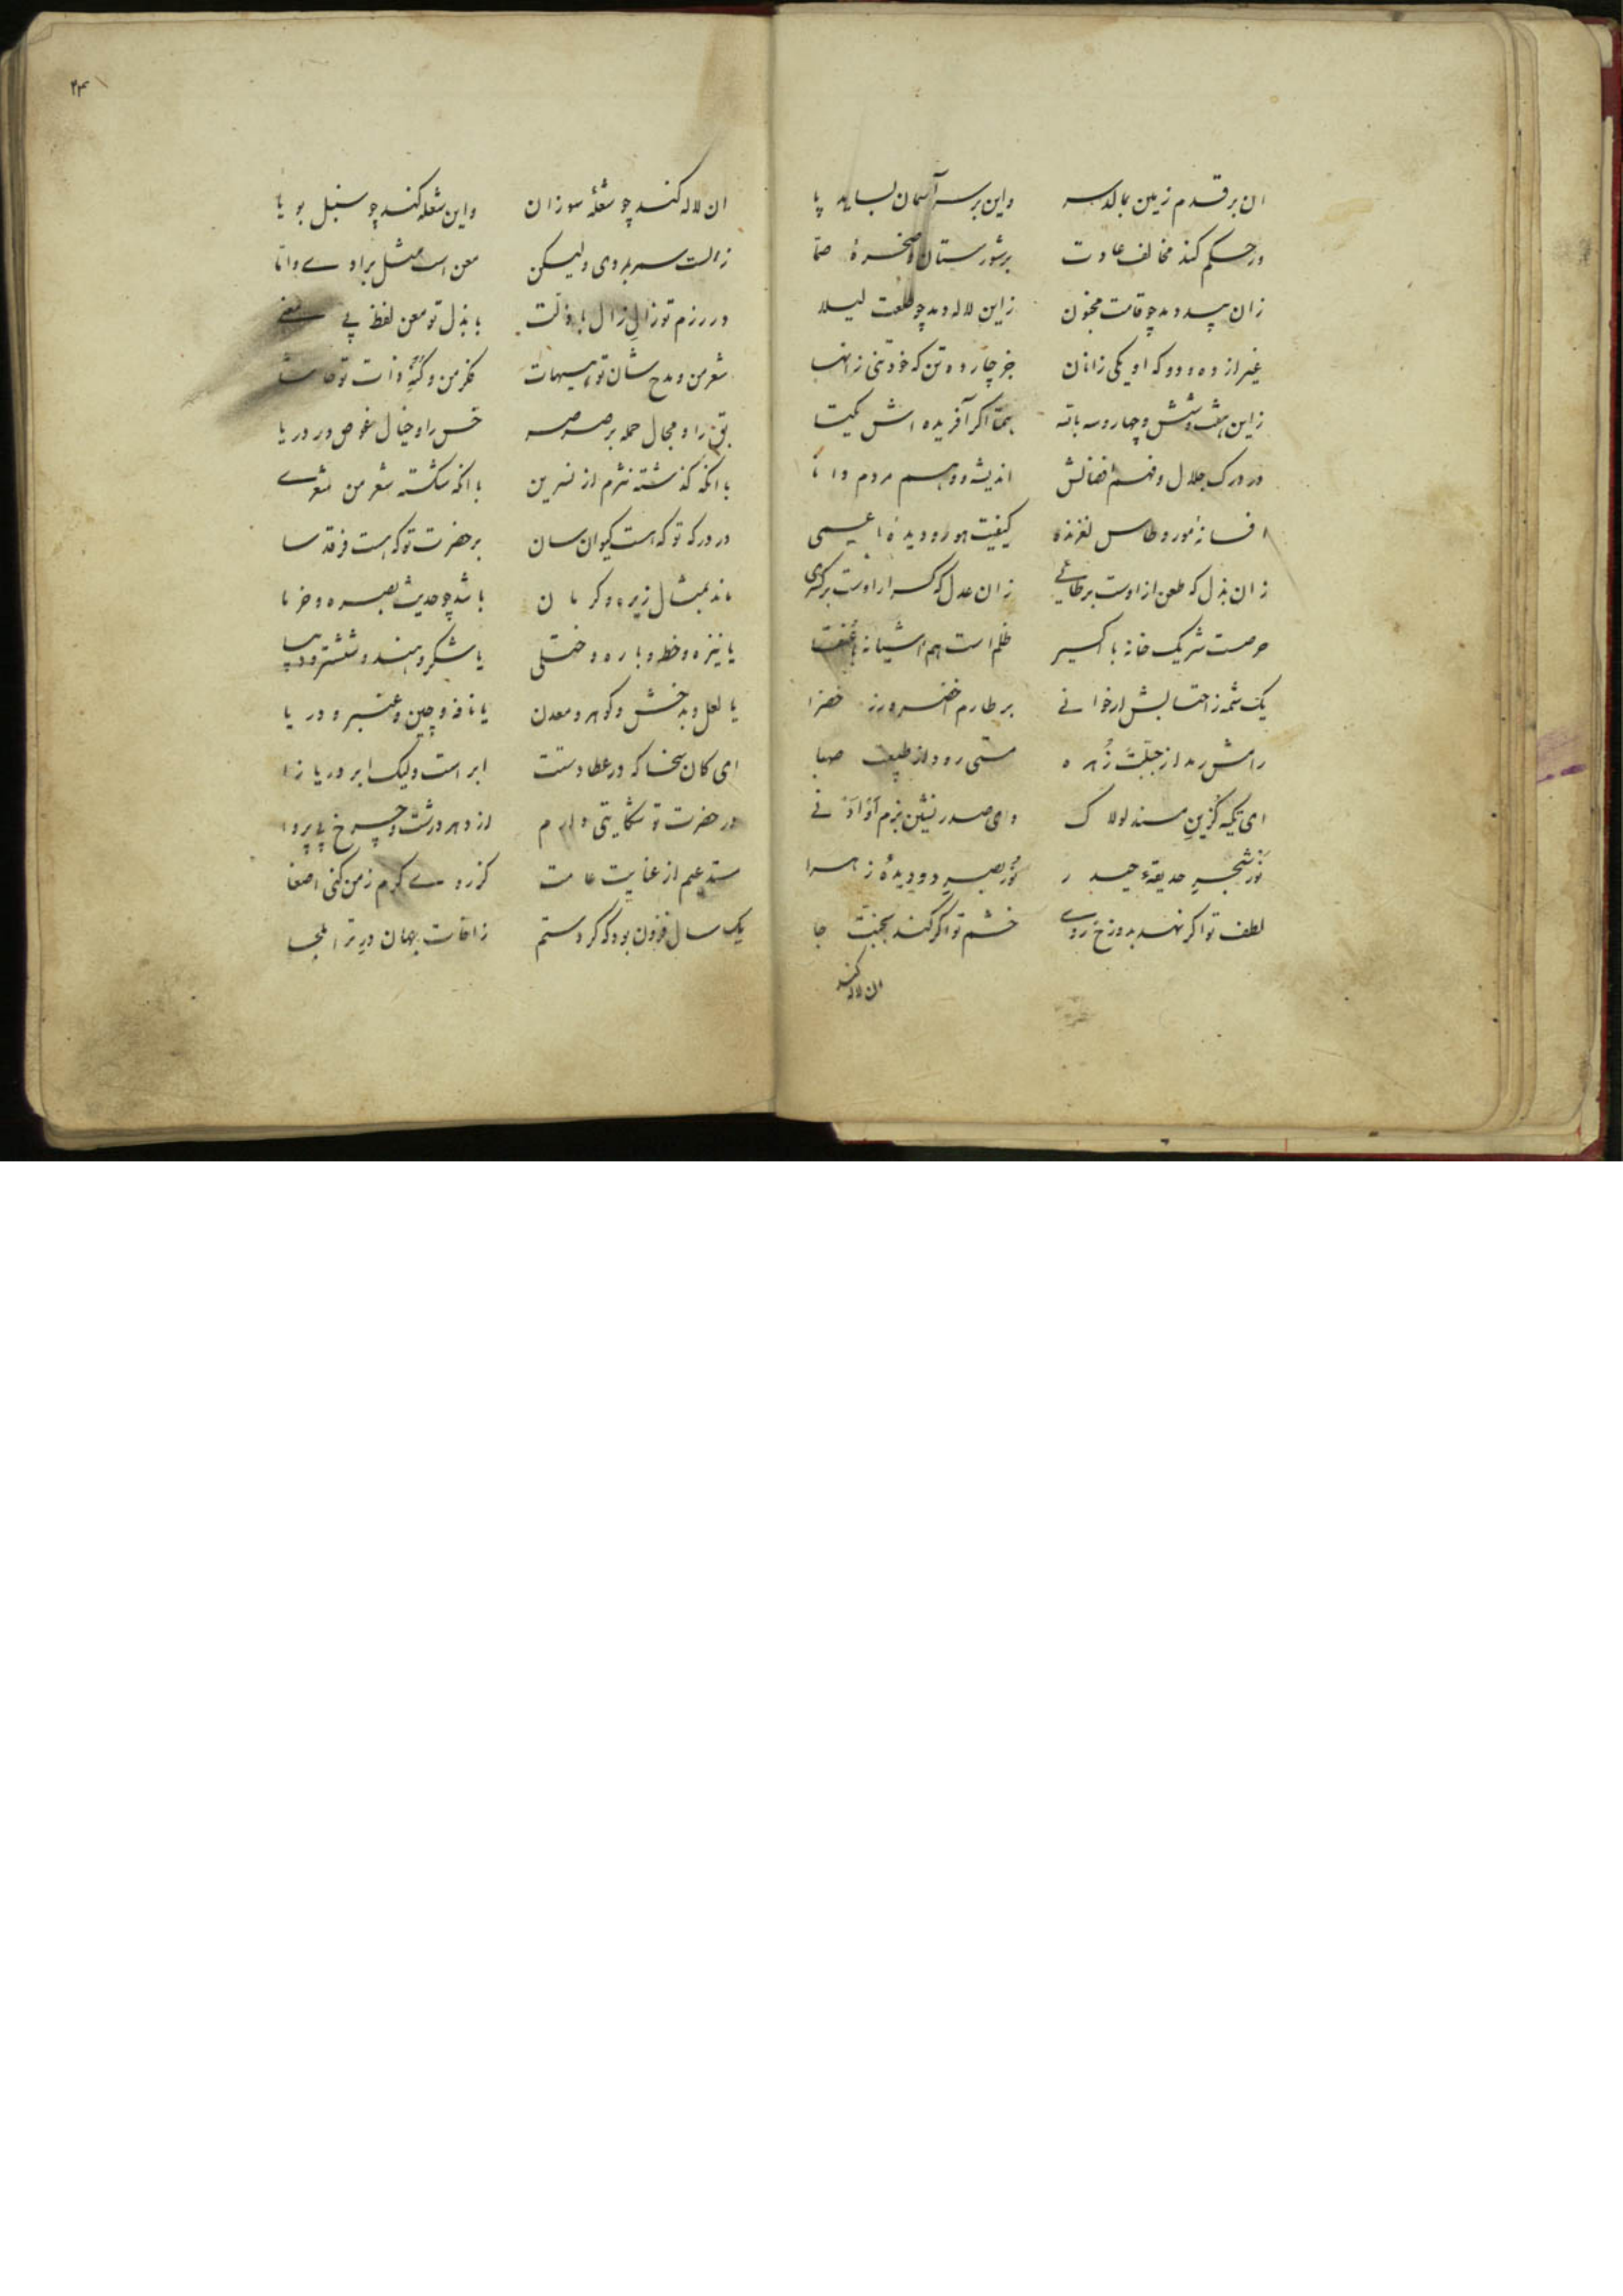 ان بر قدم زمین بمالد سر واین بر سر آسمان بساید پا
ور حکم کند مخالف عادت بر شورستان و صخرهٔ صما
زان بید دمد چو قامت مجنون زاین لاله دمد چو طلعت لیلا
غیر از ده و دو که او یکی زانان جز چار ده تن که خود تنی زانها
زاین هفت و شش و چهار و سه باته همتا اگر آفریده اش یکتا
در درک جلال و فهم افضالش اندیشه و وهم مردم دانا
افسانهٔ مور و طاس لغزنده کیفیت هور و دیدهٔ اعمی
زان بذل که طعن از اوست بر طائی زان عدل که کسر ار اوست بر کسری
حرصست شریک خانه با کسیر ظلم است هم اشیانه با عنقا
یک شمه ز احتسابش ار خوانی بر طارم اخضر و رز خضرا
رامش رمد از جبلت زهره مستی رود از طبیعت صهبا
ای تکیه گزین مسند لولاک وای صدر نشین بزم او ادنی
نور شجر حدیقهٔ حیدر نور بصر دو دیدهٔ زهرا
لطف تو اگر نهد بدوزخ روی خشم تو اگر کند بجنت جا
ان لاله کند
۲۴
ان لاله کند چو شعلهٔ سوزان واین شعله کند چو سنبل بویا
زالست سمر بمردی ولیکن معن است مثل برادی وانا
در رزم تو زال زال با ذلت با بذل تو معن لفظ بی معنی
شعر من و مدح شان تو هیهات فکر من و کنه ذات تو حاشا
بق را و مجال حمله بر صرصر خس را و خیال غوص در دریا
با انکه گذشته نثرم از نسرین با انکه شکسته شعر من شعری
در درگه تو که هست کیوان سان بر حضرت تو که هست فرقد سا
ماند بمثال زیره و کرمان باشد چو حدیث بصره و خرما
یا نیزه و خط و باره و ختلی یا شکر و هند و ششتر و دیبا
یا لعل و بدخش و گوهر و معدن یا نافه و چین و عنبر و دریا
ای کان سخا که در عطا دستت ابر است ولیک ابر دریا زا
در حضرت تو شکایتی دارم از دهر درشت و چرخ بی پروا
مستدعیم از عنایت عامت کز روی کرم ز من کنی اصغا
یک سال فزون بود که کردستم زافات جهان درت را ملجا